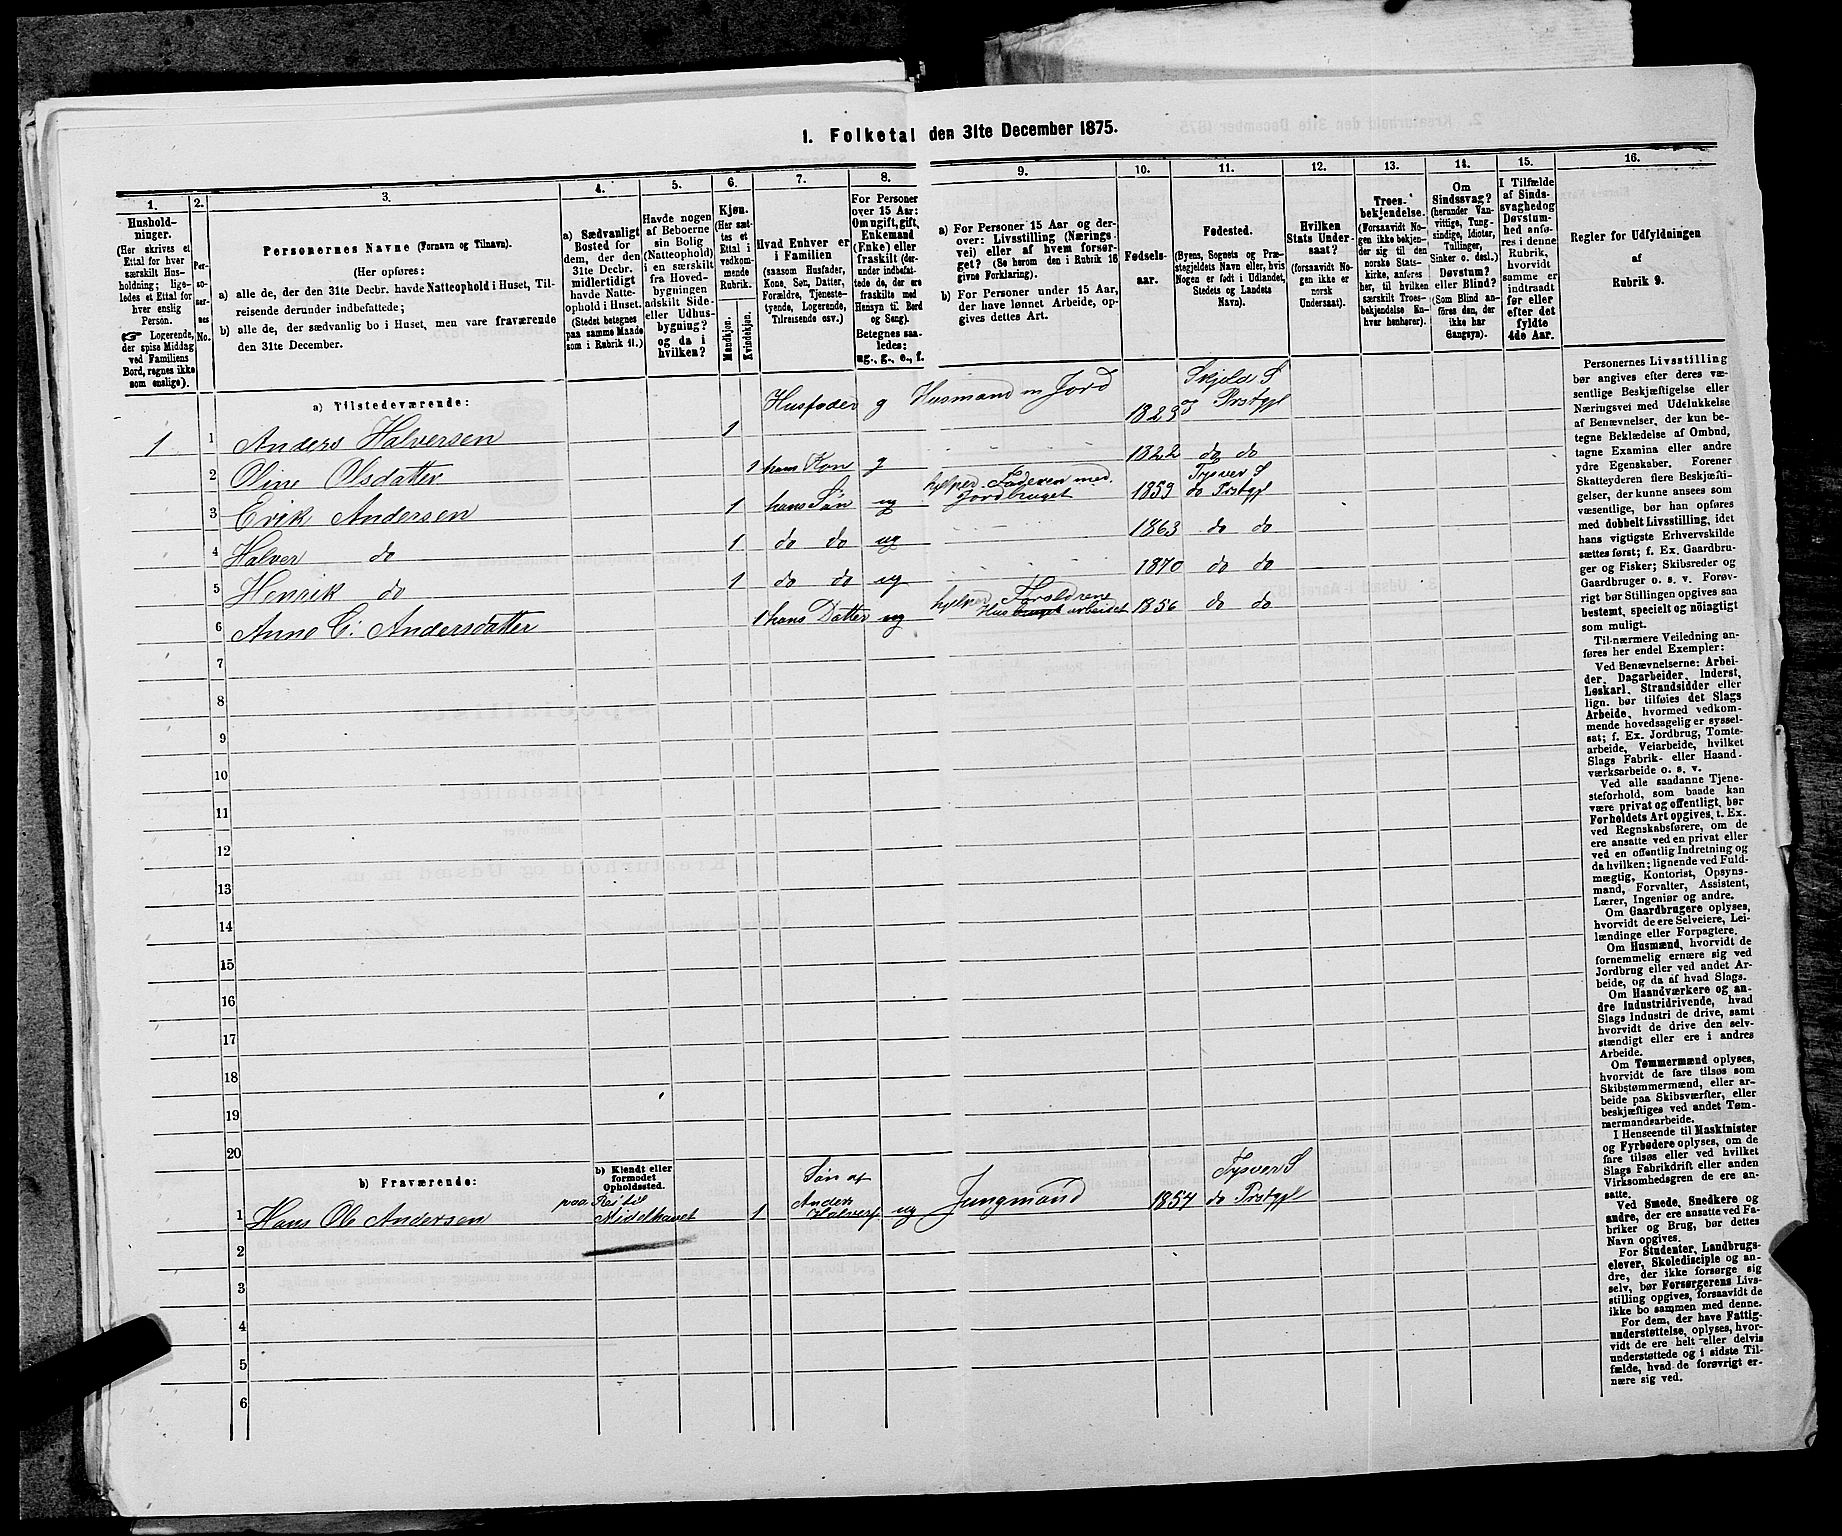 1. Folketal den 31te December 1875.
1.
Hushold-
ninger.
(Her skrives et
Ettal for hver
særskilt Hus-
holdning; lige-
ledes et Ettal for
hver enslig
Person.
Logerende,
der spise Middag
ved Familiens
Bord, regnes ikke
som enslige).
2.
Per-
so-
ner-
nes
No.
3.
Personernes Navne (Fornavn og Tilnavn).
(Her opføres:
a) alle de, der den 31te Decbr. havde Natteophold i Huset, Til-
reisende derunder indbefattede;
b) alle de, der sædvanlig bo i Huset, men vare fraværende
den 31te December.
4.
a) Sædvanligt
Bosted for
dem, der den
31te Decbr.
midlertidigt
havde Natte-
ophold i Huset.
(Stedet betegnes
paa samme Maade
som i Rubrik 11.)
5.
Havde nogen
af Beboerne
sin Bolig
(Natteophold)
i en særskilt
fra Hoved-
bygningen
adskilt Side-
eller Udhus-
bygning?
og da i
hvilken?
6.
Kjøn.
(Her sæt-
tes et
Ettal i
vedkom-
mende
Rubrik.
Mandkjøn.
Kvindekjøn.
7.
Hvad Enhver er
i Familien
(saasom Husfader,
Kone, Søn, Datter,
Forældre, Tjeneste-
tyende, Logerende,
Tilreisende osv.)
8.
For Personer
over 15 Aar:
Om ugift, gift,
Enkemand
(Enke) eller
fraskilt (der-
under indbefat-
tede de, der ere
fraskilte med
Hensyn til Bord
og Seng).
Betegnes saa-
ledes:
ug., g., e., f.
9.
a) For Personer 15 Aar og der-
over: Livsstilling (Nærings-
vei) eller af hvem forsør-
get? (Se herom den i Rubrik 16
givne Forklaring).
b) For Personer under 15 Aar,
der have lønnet Arbeide, op-
gives dettes Art.
10.
Fødsels-
aar.
11.
Fødested.
(Byens, Sognets og Præ-
stegjeldets Navn eller, hvis
Nogen er født i Udlandet,
Stedets og Landets
Navn).
12.
Hvilken
Stats Under-
saat?
(forsaavidt No-
gen ikke er
norsk
Undersaat).
13.
Troes-
bekjendelse.
(Forsaavidt No-
gen ikke bekjen-
der sig til den
norske Stats-
kirke, anføres
her, til hvilken
særskilt Troes-
bekjendelse En-
hver henhører).
14.
Om
Sindssvag?
(herunder Van-
vittige, Tung-
sindige, Idioter,
Tullinger,
Sinker o. desl.)
Døvstum?
eller Blind?
(Som Blind an-
føres den, der
ikke har
Gangsyn).
15.
I Tilfælde
af Sinds-
svaghed og
Døvstum-
hed anfø-
res i denne
Rubrik,
hvorvidt
samme er
indtraadt
før eller
efter det
fyldte
4de Aar.
16.
Regler for Udfyldningen
af
Rubrik 9.
a) Tilstedeværende:
1 1 Anders Halversen 1 Husfader g Husmand m Jord 1823 Skjold S og Prstgjl
2 Oline Olsdatter 1 hans Kon g 1822 do do
3 Erik Andersen 1 hans Søn ug hjelper Faderen med Jordbruget 1859 Tysver S do Prstgjl
4 Halver do 1 do do ug 1863 do do
5 Henrik do 1 do do ug 1870 do do
6 Anne C: Andersdatter 1 hans Datter ug hjelper Forældrene Hus arbeidet 1856 do do
7
8
9
10
11
12
13
14
15
16
17
18
19
20
b) Fraværende:
b) Kjendt eller
formodet
Opholdssted.
1 Hans Ole Andersen paa Rei til Middlhavet 1 Søn af Anders Halvers ug Jungmand 1854 Tysver S do Prstgjl
2
3
4
5
6
Personernes Livsstilling
bør angives efter deres væ-
sentlige Beskjæftigelse eller
Næringsvei med Udelukkelse
af Benævnelser, der kun be-
tegne Beklædelse af Ombud,
tagne Examina eller andre
ydre Egenskaber. Forener
Skatteyderen flere Beskjæfti-
gelser, der kunne ansees som
væsentlige, bør han opføres
med dobbelt Livsstilling, idet
hans vigtigste Erhvervskilde
sættes først; f. Ex. Gaardbru-
ger og Fisker; Skibsreder og
Gaardbruger o. s. v. Forøv-
rigt bør Stillingen opgives saa
bestemt, specielt og nøiagtigt
som muligt.
Til nærmere Veiledning an-
føres her endel Exempler:
Ved Benævnelserne: Arbei-
der, Dagarbeider, Inderst,
Løskarl, Strandsidder eller
lign. bør tilføies det Slags
Arbeide, hvormed vedkom-
mende hovedsagelig er syssel-
sat; f. Ex. Jordbrug, Tomte-
arbeide, Veiarbeide, hvilket
Slags Fabrik- eller Haand-
værksarbeide o. s. v.
Ved alle saadanne Tjene-
steforhold, som baade kan
være privat og offentligt, bør
Forholdets Art opgives, t. Ex.
ved Regnskabsførere, om de
ere ansatte ved en privat eller
ved en offentlig Indretning og
da hvilken; lignende ved Fuld-
mægtig, Kontorist, Opsyns-
mand, Forvalter, Assistent,
Lærer, Ingeniør og andre.
Om Gaardbrugere oplyses,
hvorvidt de ere Selveiere, Lei-
lændinge eller Forpagtere.
Om Husmænd, hvorvidt de
fornemmelig ernære sig ved
Jordbrug eller ved andet Ar-
beide, og da af hvad Slags.
Om Haandværkere og an-
dre Industridrivende, hvad
Slags Industri de drive, samt
hvorvidt de drive den selv-
stændigt eller ere i andres
Arbeide.
Om Tømmermænd oplyses,
hvorvidt de fare tilsøs som
Skibstømmermænd, eller ar-
beide paa Skibsværfter, eller
beskjæftiges ved andet Tøm-
mermandsarbeide.
I Henseende til Maskinister
og Fyrbødere oplyses, om de
fare tilsøs eller ved hvilket
Slags Fabrikdrift eller anden
Virksomhedsgren de ere an-
satte.
Ved Smede, Snedkere og
andre, der ere ansatte ved Fa-
briker og Brug, bør dettes
Navn opgives.
For Studenter, Landbrugs-
elever, Skoledisciple og an-
dre, der ikke forsørge sig
selv, bør Forsørgerens Livs-
stilling opgives, forsaavidt de
ikke bo sammen med denne.
For dem, der have Fattig-
understøttelse, oplyses, hvor-
vidt de ere helt eller delvis
understøttede og i sidste Til-
fælde, hvad de forøvrigt er-
nære sig ved.